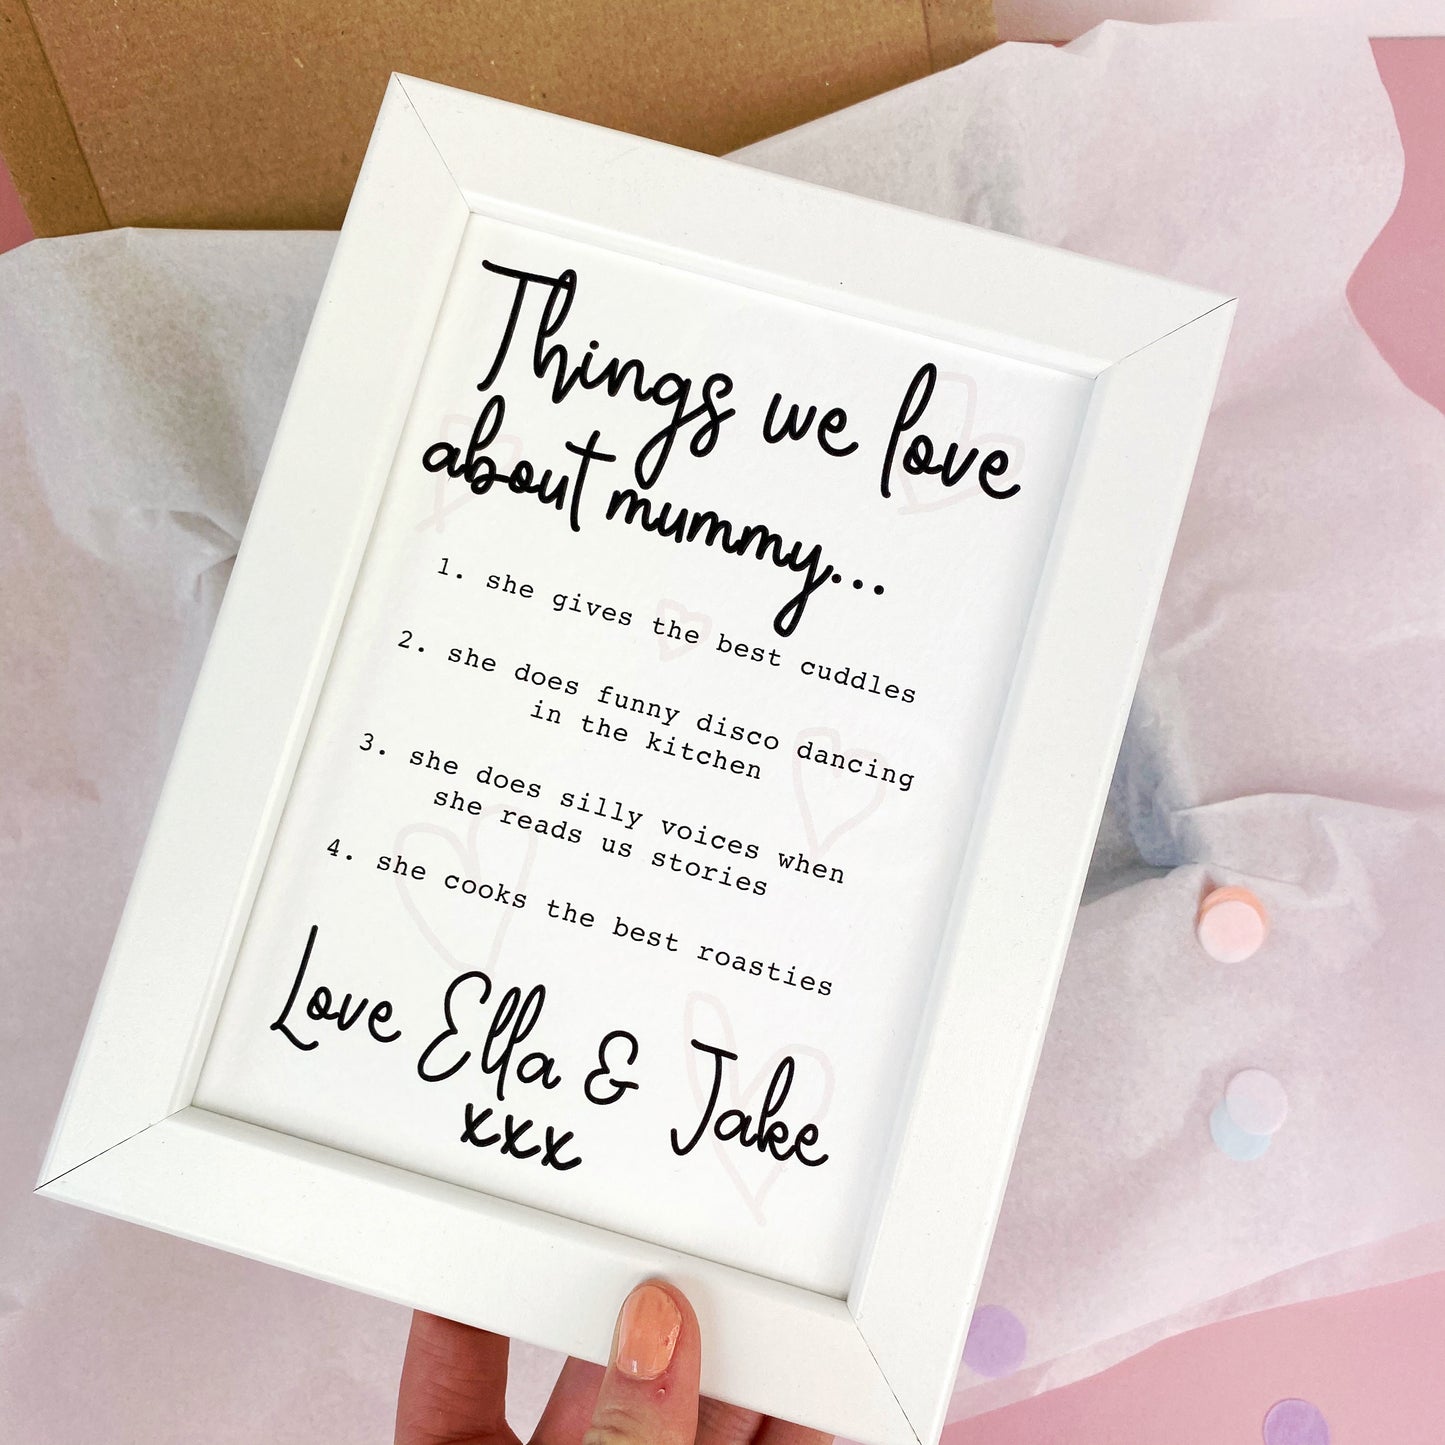 Things we love
about mummy...
1. she gives the best cuddles
2. she does funny disco dancing
in the kitchen
3. she does silly voices when
she reads us stories
4. she cooks the best roasties
Love Ella & Jake
xxx